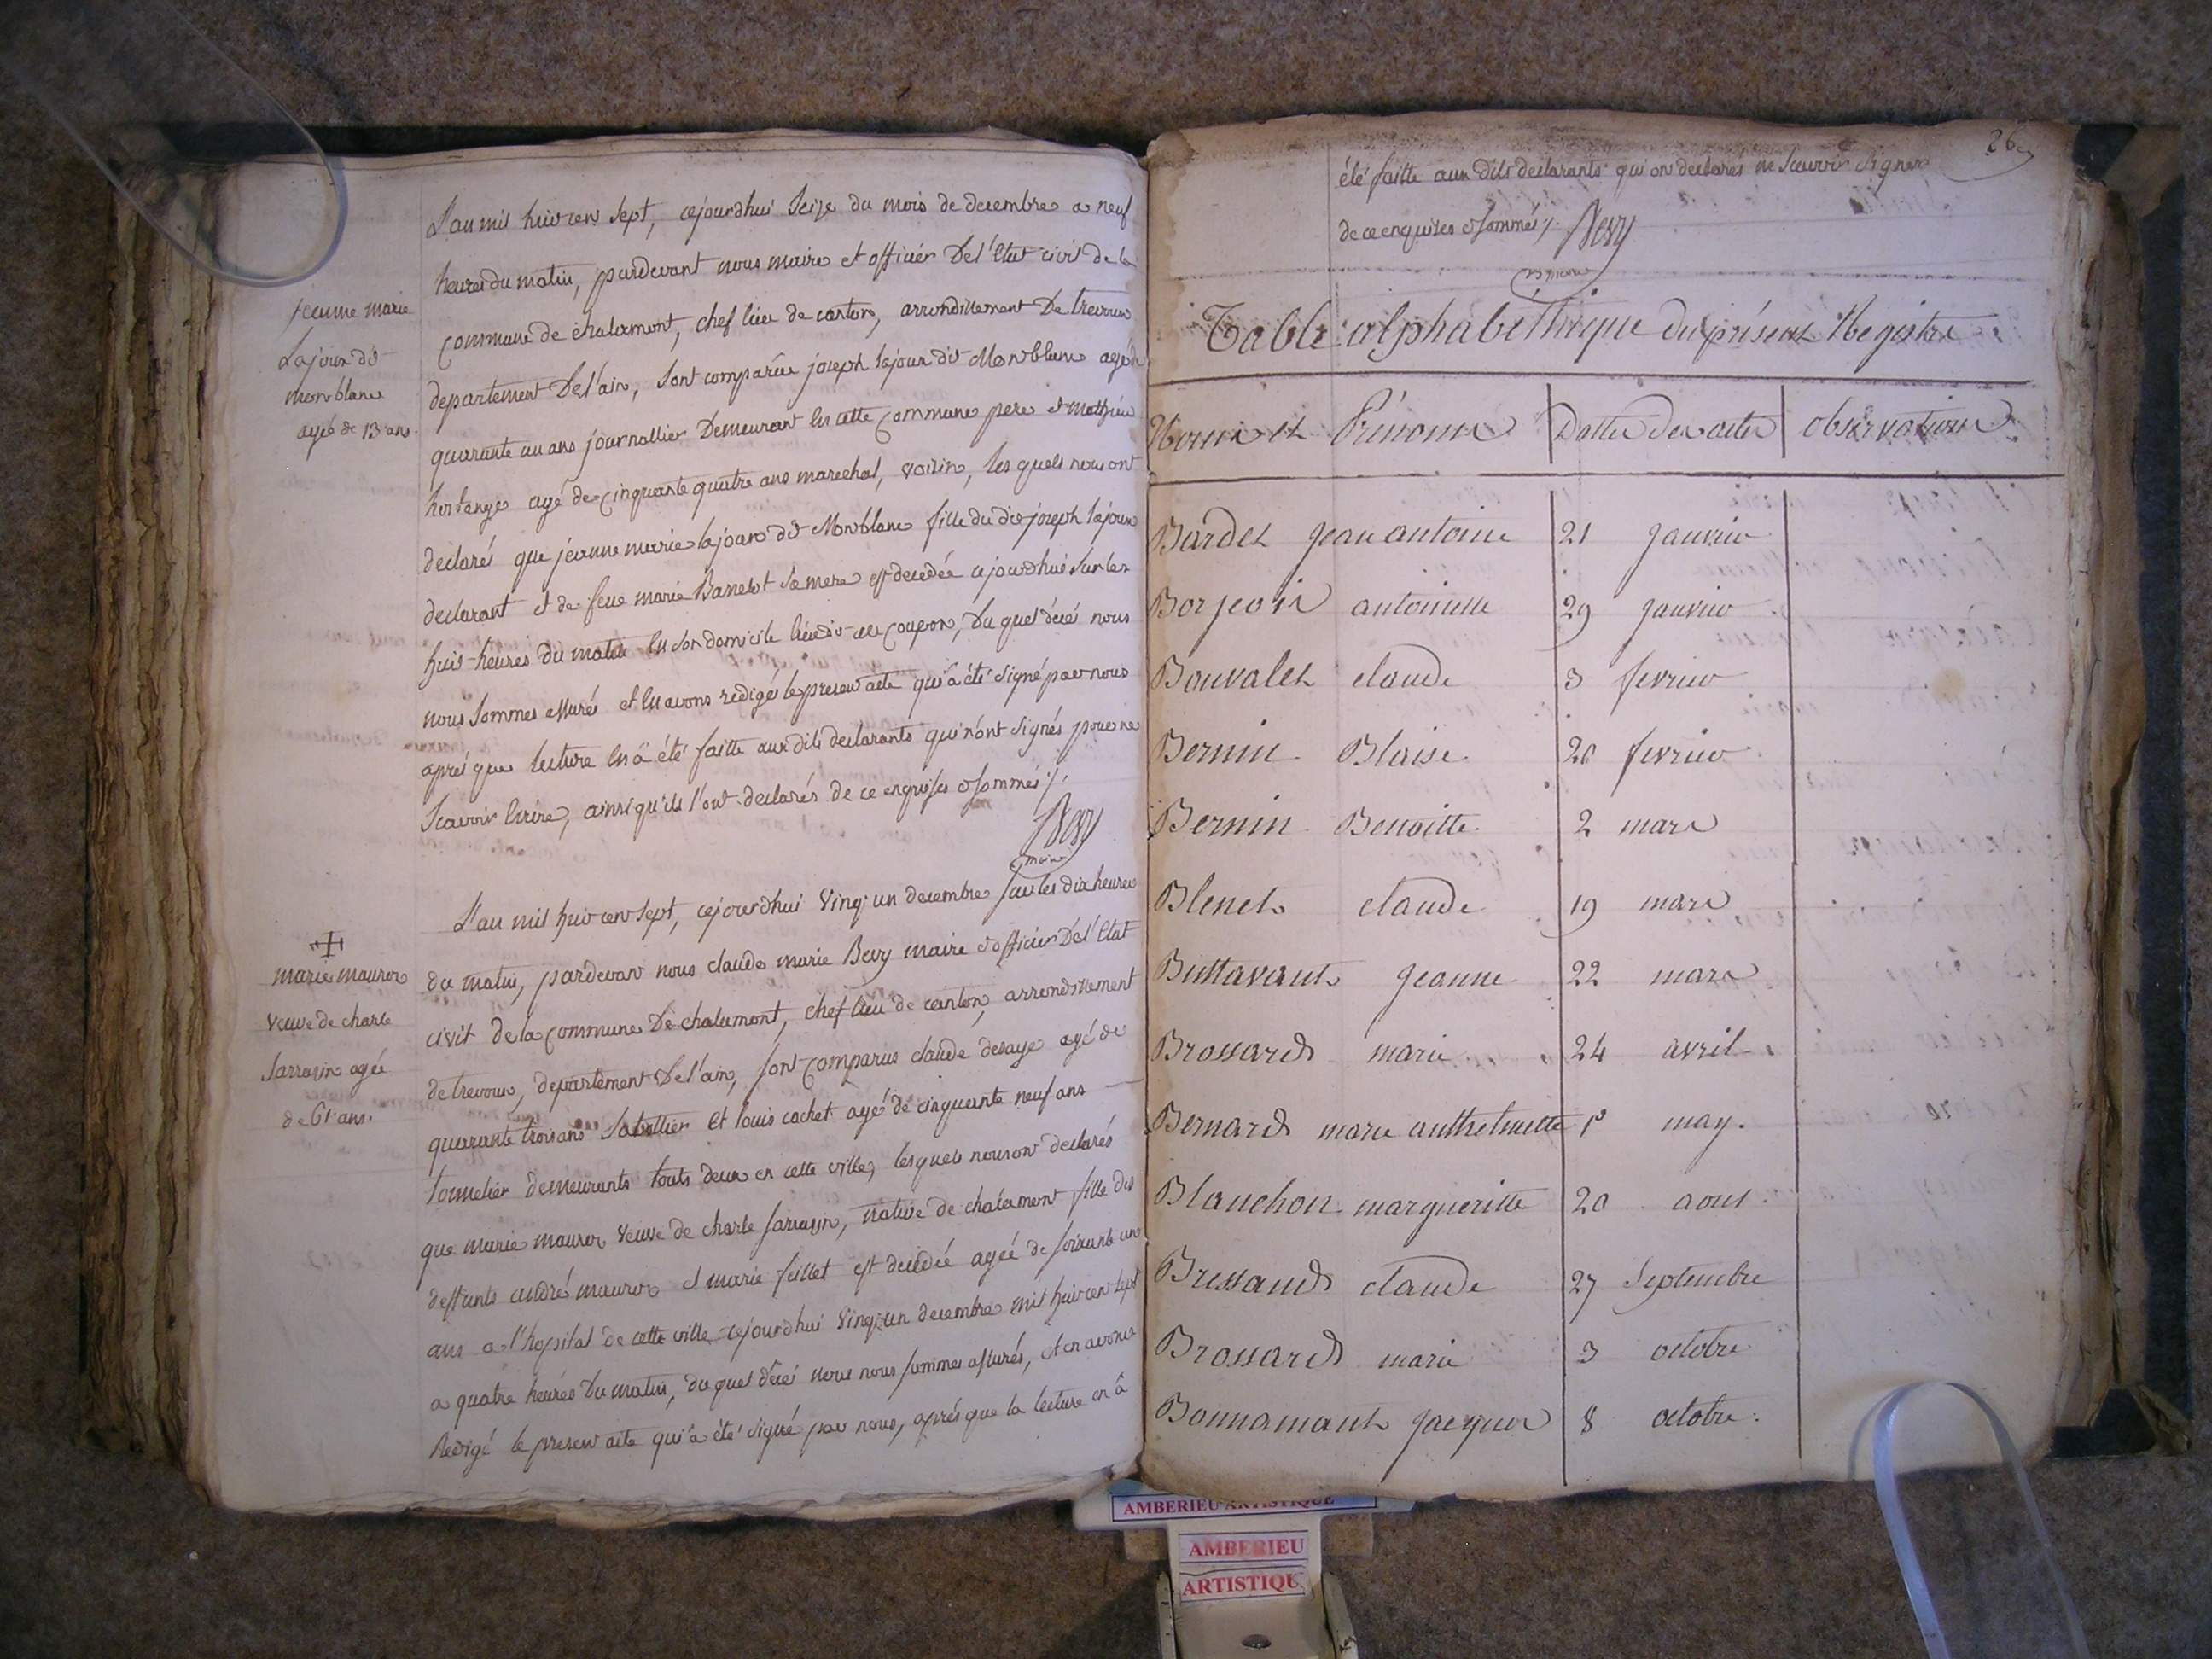 jeanne marie
Lajoux dit
monblanc
agée de 13 ans.
L'an mil huit cent sept, cejourdhui seize du mois de decembre a neuf
heures du matin, pardevant nous maire et officier De l'Etat civil de la
commune de chalamont, chef lieu de canton, arrondissement De trevoux
departement De l'ain, sont comparue joseph lajoux dit Monblanc agé de
quarante un ans journallier Demeurant En cette commune pere et mathieu
agé de cinquante quatre ans marechal, voisin, les quels nous ont
declarés que jeanne marie lajoux dit Monblanc fille du dit joseph lajoux
declarant et de feue marie sa mere est decedée cejourdhui sur les
huit heures du matin En son domicile lieu dit coupon, Du quel décés nous
nous sommes assurés et En avons redigés le present acte qui a été signé par nous
aprés que lecture En a été faitte aux dits declarants qui n'ont signés pour ne
scavoir Ecrire, ainsi qu'ils l'ont declarés de ce enquises et sommés ./.
Bevy
maire
+
marie maurer
veuve de charle
Sarrazin agée
de 61 ans.
L'an mil huit cent sept, cejourdhui vingt un decembre sur les dix heures
du matin, pardevant nous claude marie Bevy maire et officier De l'Etat
civil de la commune De chalamont, chef lieu de canton, arrondissement
de trevoux, departement De l'ain, sont comparus claude desaye agé de
quarante trois ans Sabottier et louis cachet agé de cinquante neuf ans
tonnelier demeurants touts deux en cette ville, lesquels nous ont declarés
que marie maurer veuve de charle sarrazin, native de chalamont fille des
deffunts andré maurer et marie feillet est decedée agée de soixante un
ans a l'hopital de cette ville cejourdhui vingt un decembre mil huit cent sept
a quatre heures Du matin, du quel décés nous nous sommes assurés, et en avons
Redigé le present acte qui a été signé par nous, aprés que la lecture en a
26
été faitte aux dits declarants qui ont declarés ne scavoir signer
de ce enquises et sommés ./. Bevy
maire
Table alphabéthique du présent Registre
Noms et Prénoms | Dattes des actes | observations
Bardet jean antoine 21 janvier
Borjeois antoinette 29 janvier
Bouvalet claude 3 fevrier
Bernin Blaise 20 fevrier
Bernin Benoitte 2 mars
Blenet claude 19 mars
Buttavant jeanne 22 mars
Brossard marie 24 avril
Bernard marie anthelmette 1er may.
Blanchon margueritte 20 aout.
Bressand claude 27 Septembre
Brossard marie 3 octobre
Bonnamant jacques 8 octobre.
AMBERIEU ARTISTIQUE
AMBERIEU
ARTISTIQU